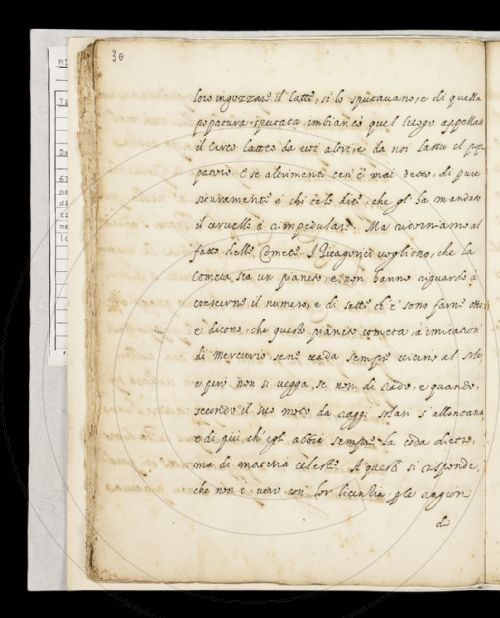 30
loro ingozzare il latte, si lo sputavano, e di quella
popatura sputata imbiancò quel luogo appellato
il circo latteo da voi altri, e da noi lassu il pop
patorio. E se altrimenti ten'è mai detto, di pure
sicuramente à chi te lo dite, che gl'ha mandato
il cervello à rimpedulare. Ma ritorniamo al
fatto delle Comete. I Pitagorici vogliono, che la
Cometa sia un pianeto, e non hanno riguardo à
crescerne il numero, e di sette ch'e' sono farne otto
e dicono, che questo pianeto cometa, à imitazion
di Mercurio sene vada sempre vicino al sole,
e però non si vegga, se non di rado, e quando,
secondo il suo moto da raggi solari s'allontana,
e di più, ch'egli abbia sempre la coda dietro,
ma di materia celeste. A questi si risponde,
che non è vero con lor licenzia, per le ragioni
di
MI